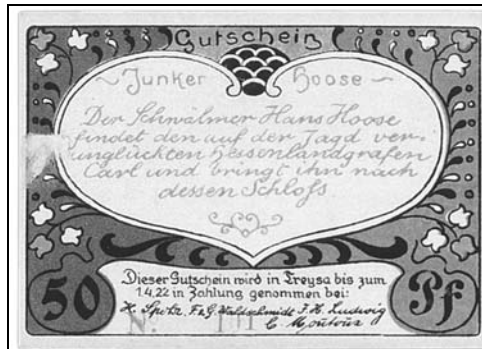 Gutschein
Junker Hoose
Der Schwälmer Hans Hoose
findet den auf der Jagd ver-
unglückten Hessenlandgrafen
Carl und bringt ihn nach
dessen Schloß
50 Pf
Dieser Gutschein wird in Treysa bis zum
1.4.22 in Zahlung genommen bei:
H. Spohr, F.&G. Waldschmidt J.H. Ludwig
C.
N: